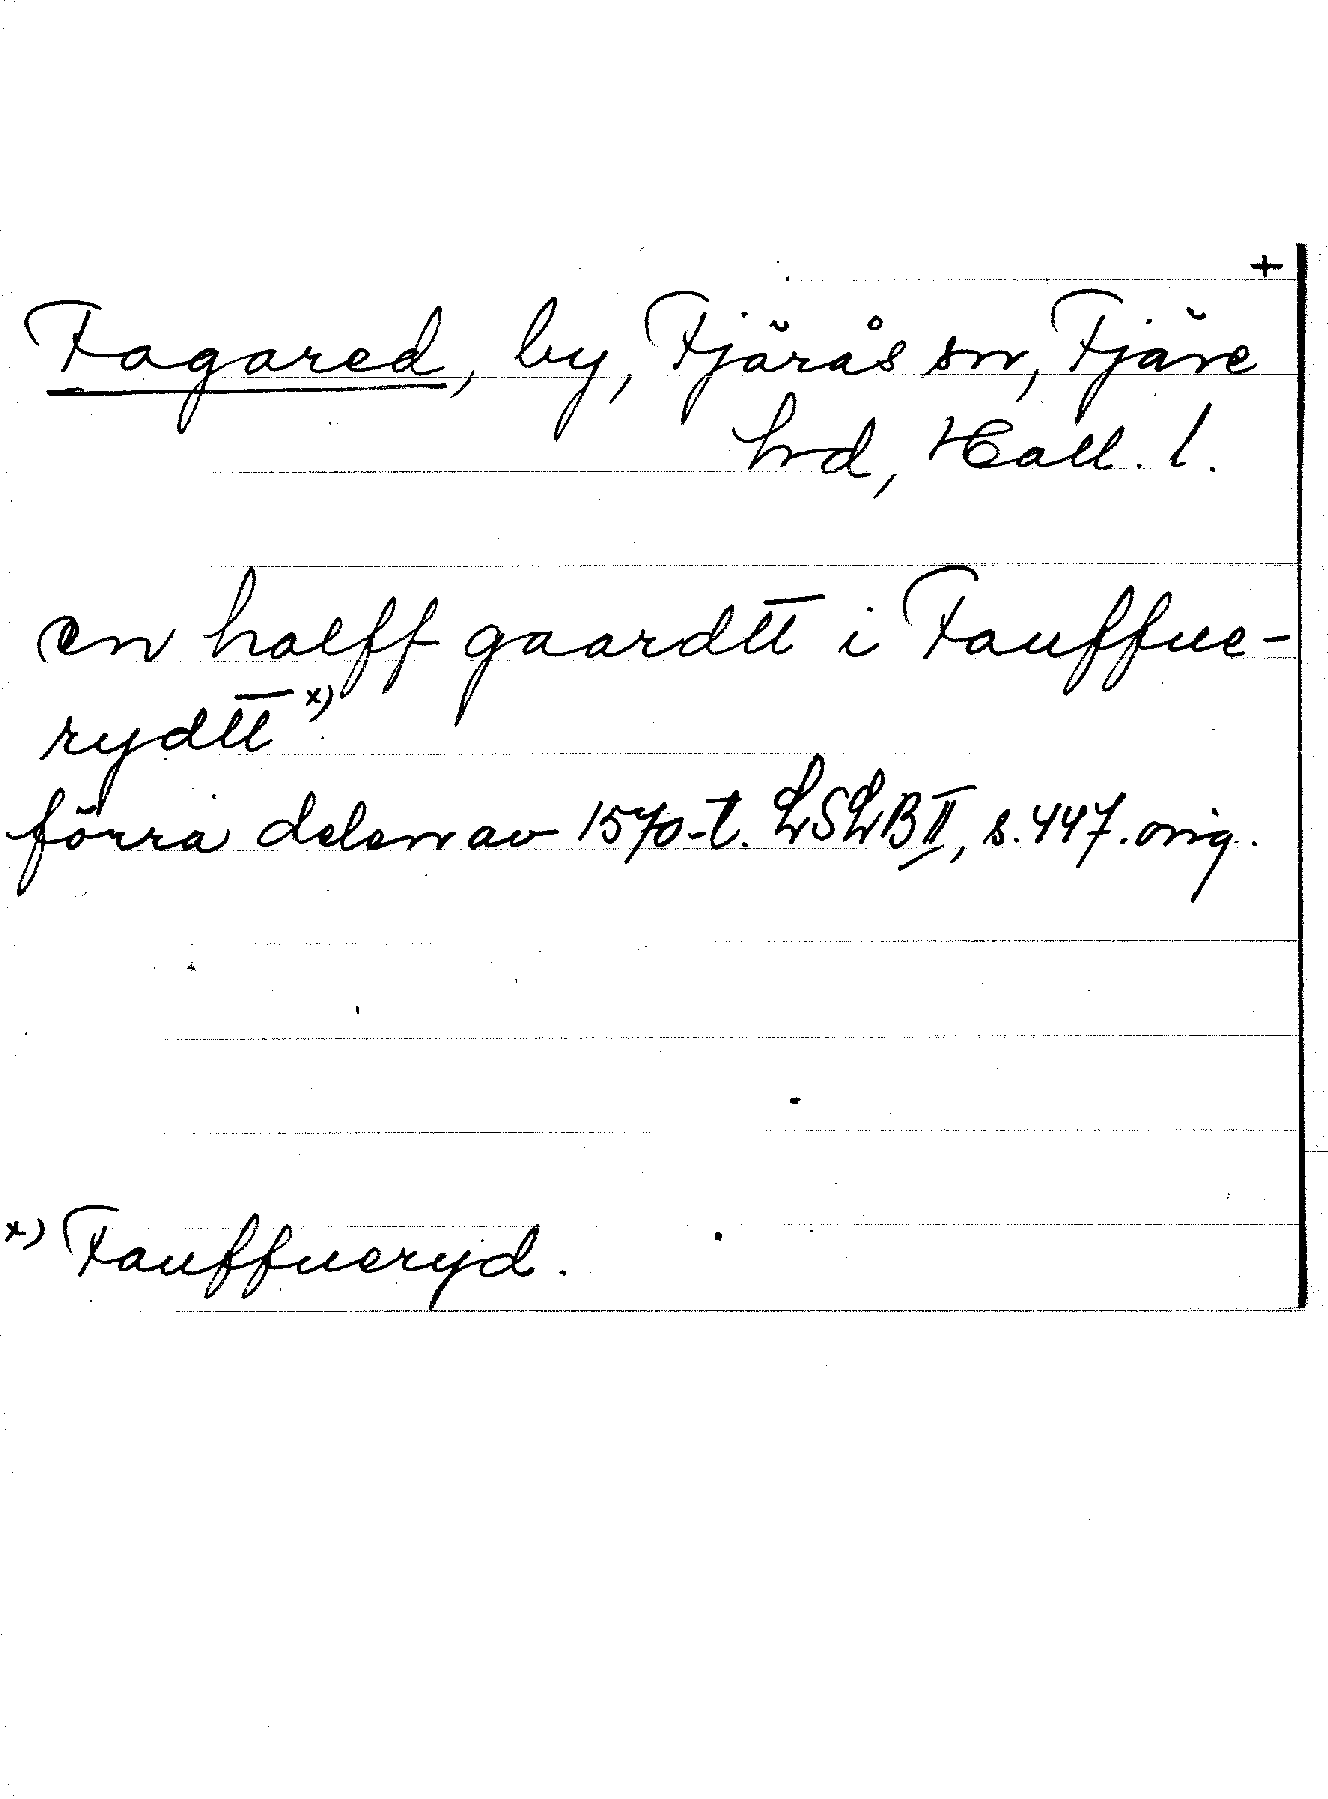 +
Fagared, by, Fjärås sn, Fjäre
hrd, Hall. l.
en halff gaardtt i Fauffue-
rydtt x)
förra delen av 1570-t. LSLB II, s. 447. orig.
x) Fauffueryd.